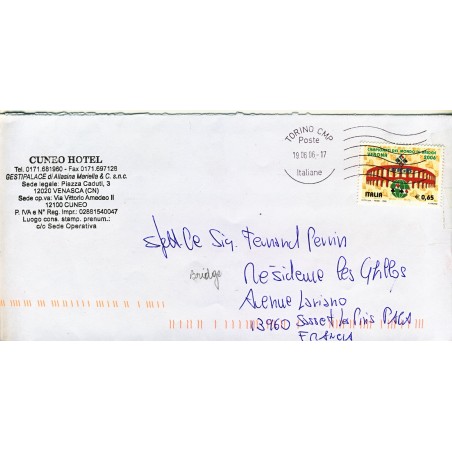 CUNEO HOTEL
Tel. 0171.681960 - Fax 0171.697128
GESTIPALACE di Allasina Mariella & C. s.n.c.
Sede legale: Piazza Caduti, 3
12020 VENASCA (CN)
Sede op.va: Via Vittorio Amedeo II
12100 CUNEO
P. IVA e N° Reg. Impr.: 02881540047
Luogo cons. stamp. prenum.:
c/o Sede Operativa
TORINO CMP
Poste
19.06.06 - 17
Italiane
CAMPIONATI DEL MONDO DI BRIDGE
VERONA 2006
ITALIA € 0,65
Sig. Fernand Perrin
Bridge
Residence les
Avenue
13960 Sausset les Pins
FRANCIA